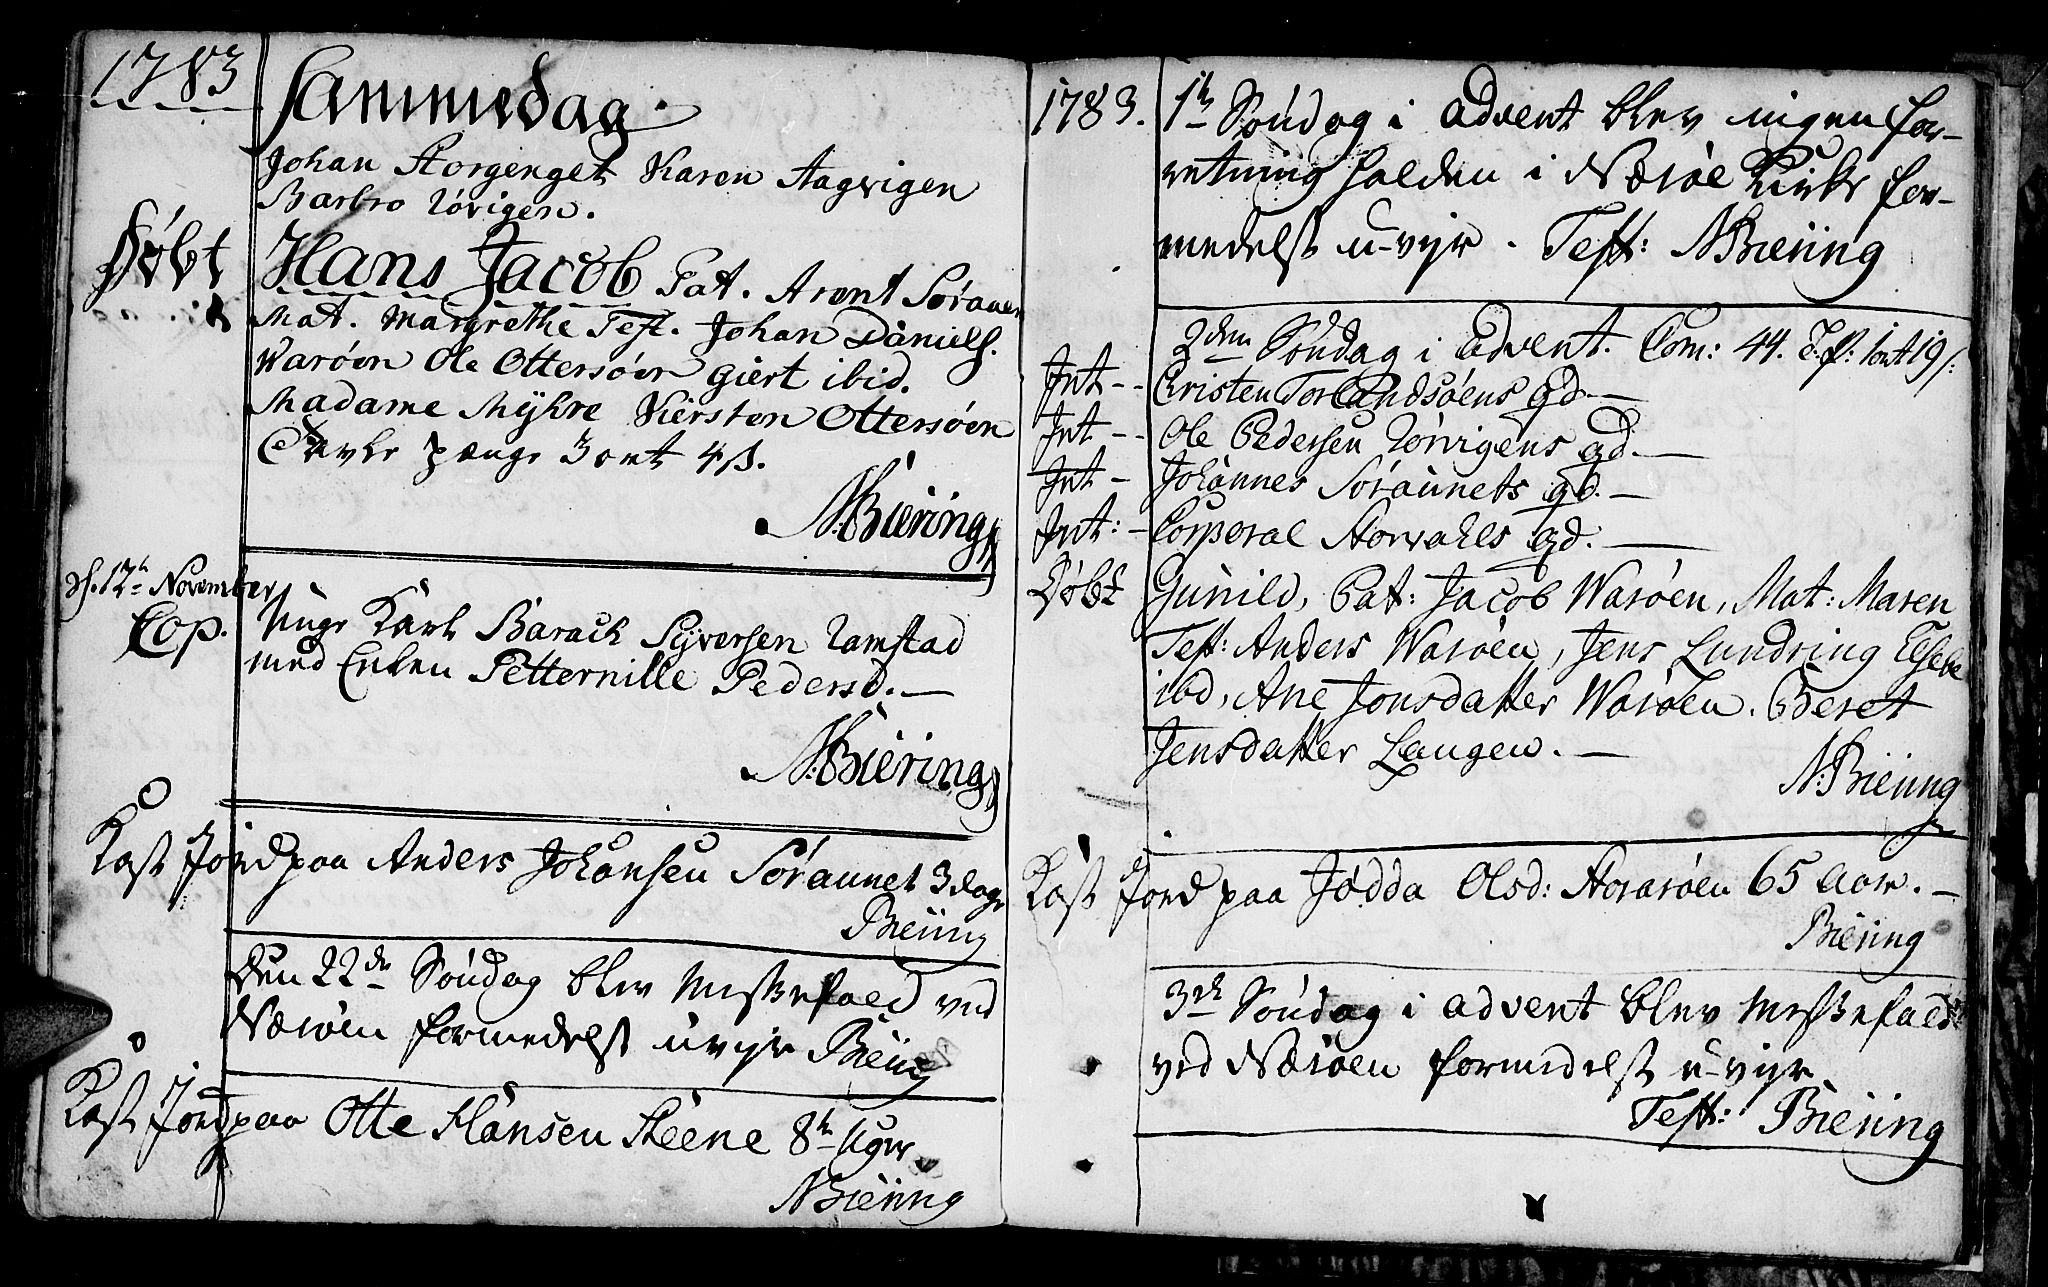 1783
Sammedag.
Johan Storgenget Karen Aagvigen
Barbro Lövigen.
Döbt Hans Jacob Pat. Arent Söraunet
Mat. Margrethe Test. Johan Daniels.
Waröen Ole Ottersöen giert ibid.
Madame Myhre Kiersten Ottersöen
Tavle penge 3 ort 4 s.
N: Biering
d. 12te November
Cop. unge Karl Barach Syversen Ramstad
med Enken Petternille Pedersd. —
N: Biering
Kast Jord paa Anders Johansen Söraunet 3 dage
Biering
Den 22de Söndag blev Messefald ved
Næröen formedelst uveyr Biering
Kast Jord paa Otte Hansen Steene 8te Uger
N Biering
1783. 1te Söndag i Advent blev ingen for-
retning holden i Næröe Kirke for-
medelst u-vejr. Test: N Biering
2den Söndag i Advent. Com: 44. T. p: 1 ort 19 s:
Int -- Cristen Torlandsöens qd —
Int -- Ole Pedersen Lörvigens qd. —
Int - Johannes Söraunets qd. —
Int: - Corporal Storvahls qd. —
Döbt Gunild, Pat: Jacob Waröen, Mat: Maren
Test: Anders Waröen, Jens Lundring Elsebe
ibd, Ane Jonsdatter Waröen. Beret
Jensdatter Langen. —
N: Biering
Kast Jord paa Jödda Olsd: Storaröen 65 Aar. —
Biering
3de Söndag i Advent blev Messefald
ved Næröen formedelst u-vejr.
Test: Biering